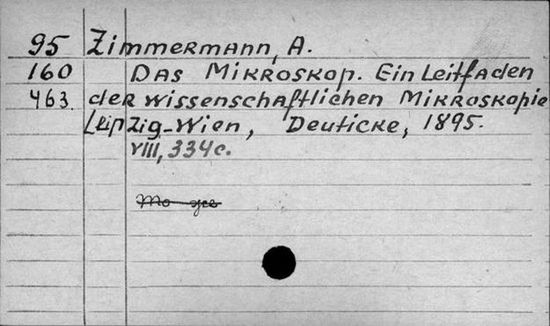 95 Zimmermann, A.
160 Das Mikroskop. Ein Leitfaden
463 der wissenschaftlichen Mikroskopie
Leipzig-Wien, Deuticke, 1895.
VIII, 334c.